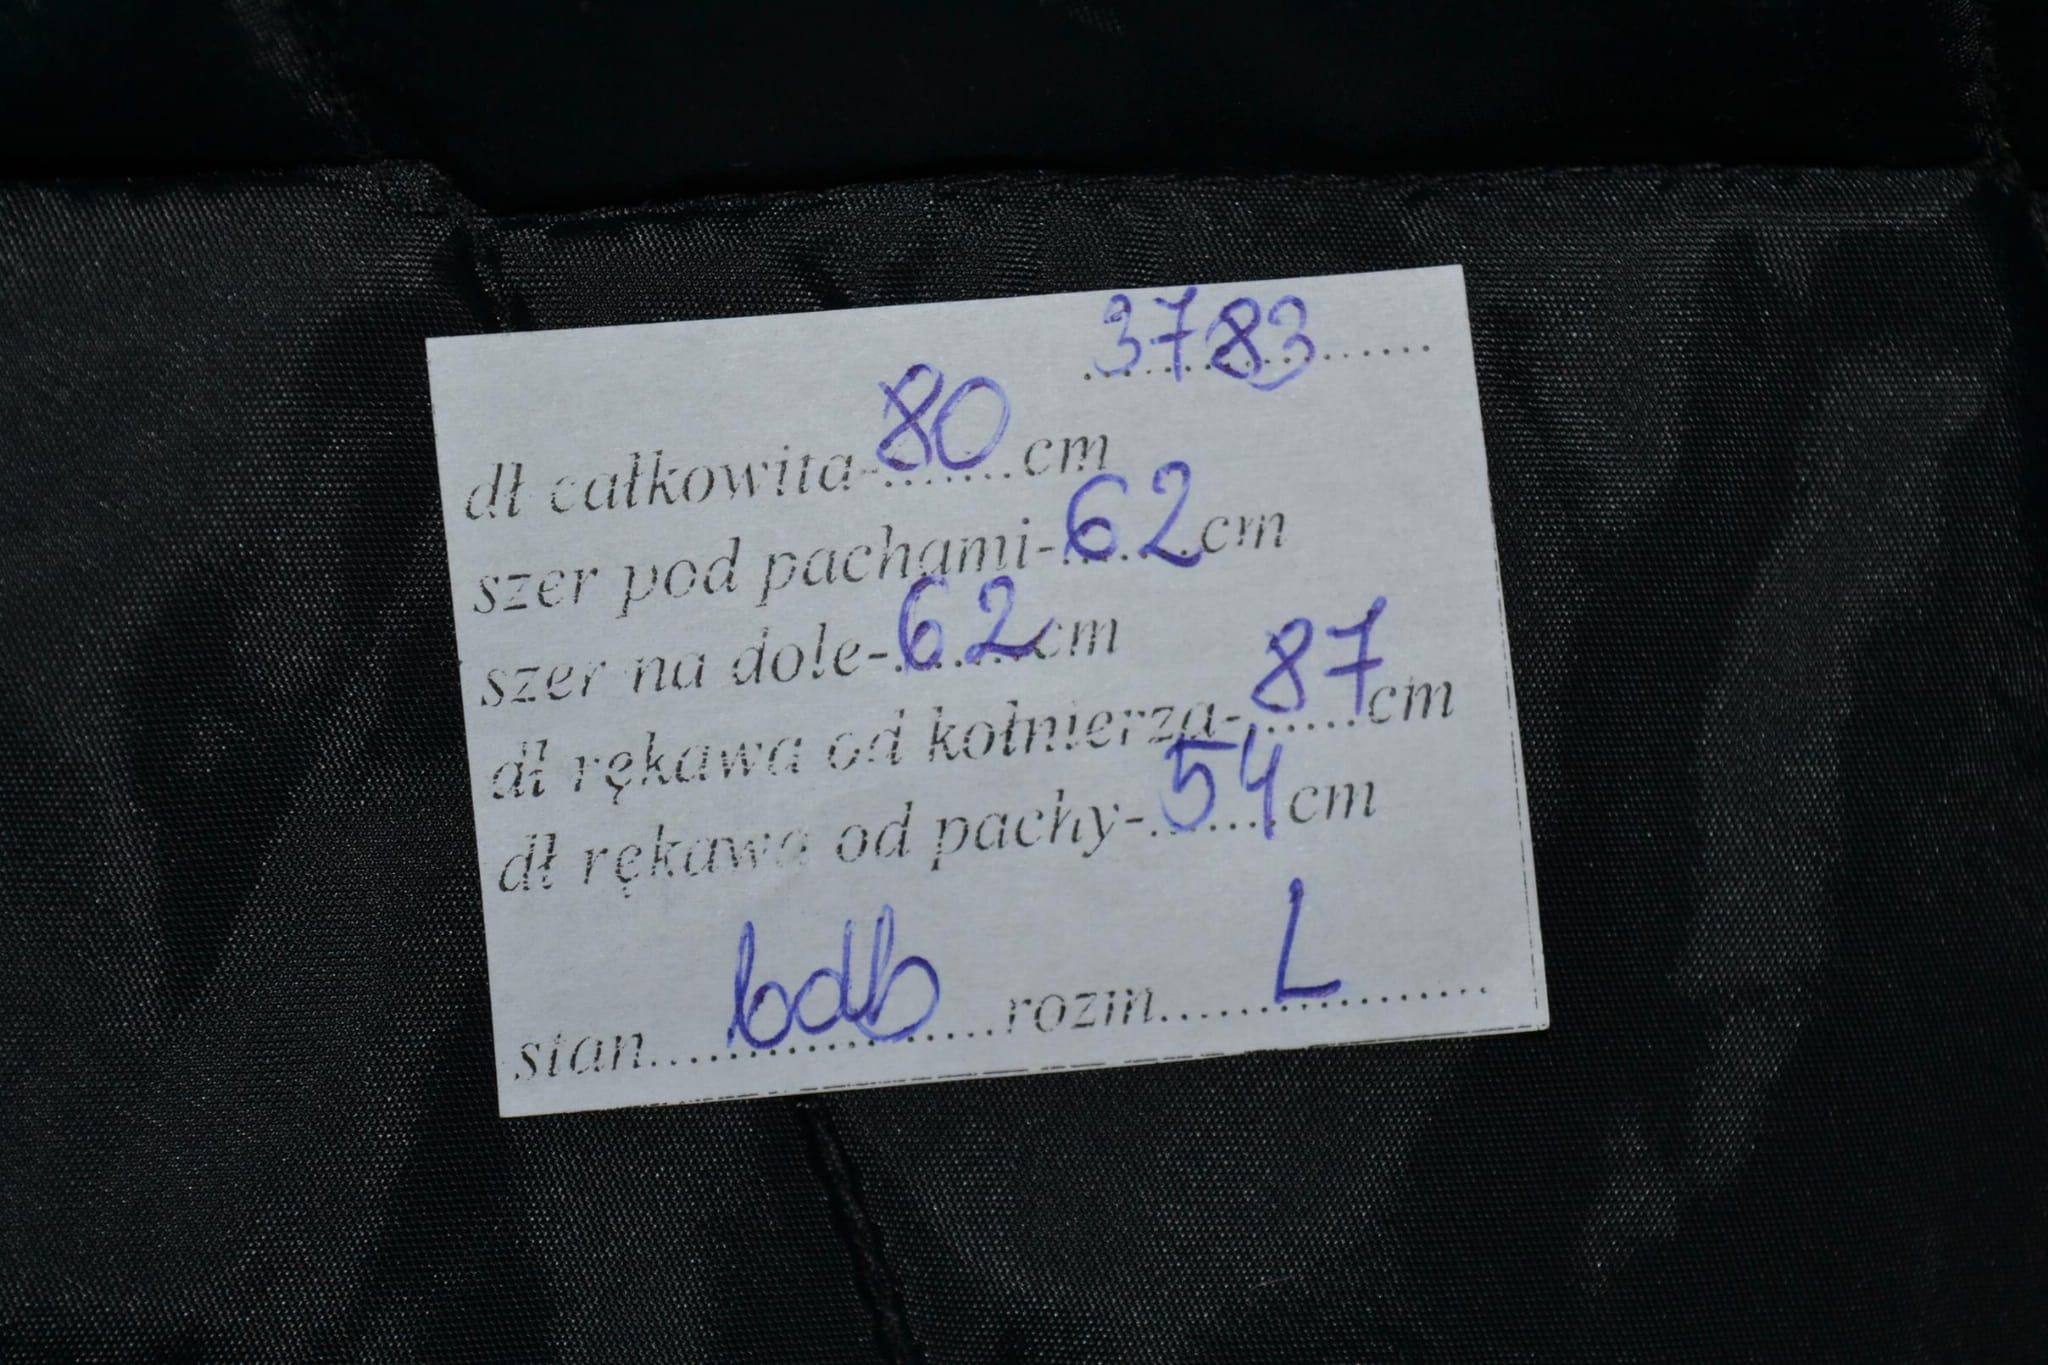 3783
dł całkowita-80.......cm
szer pod pachami-62cm
szer na dole-62cm
dł rękawa od kołnierza-87cm
dł rękawa od pachy-54cm
stan....bdb....rozm.....L.........